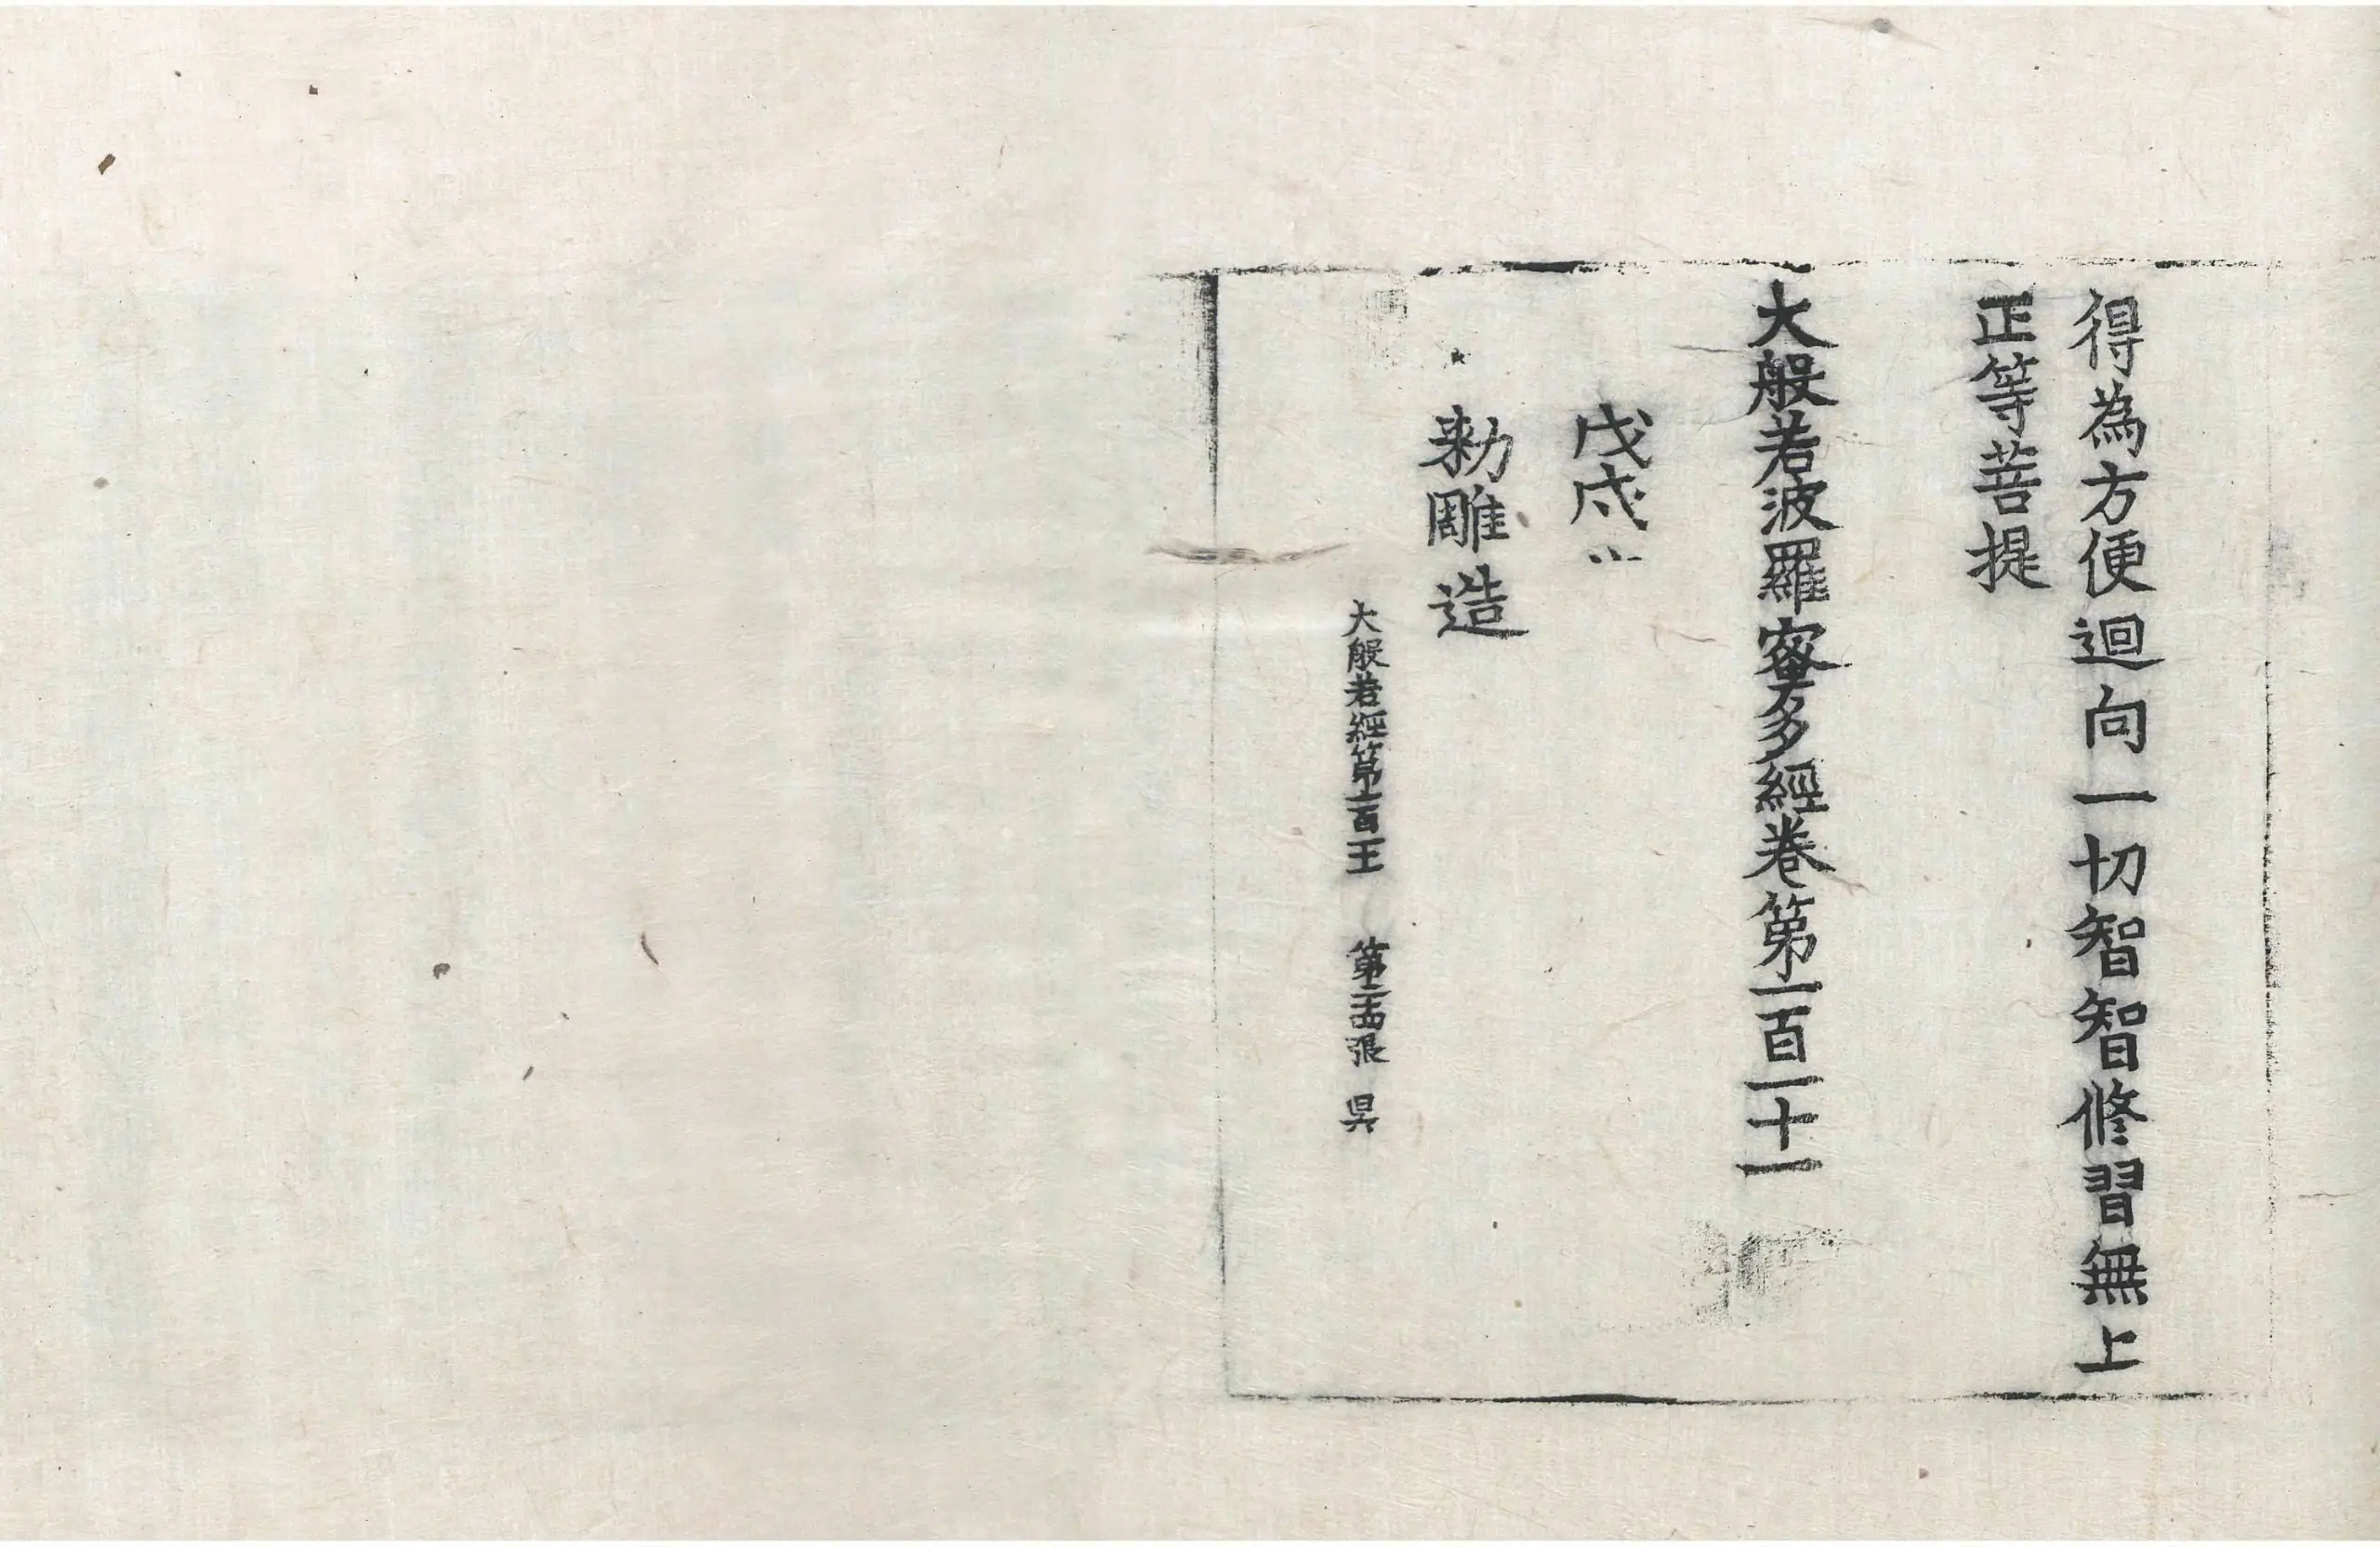 得為方便迴向一切智智修習無上
正等菩提
大般若波羅蜜多經卷第一百二十一
戊戌
勑雕造
大般若經第一百二十一 第二十四張 呉